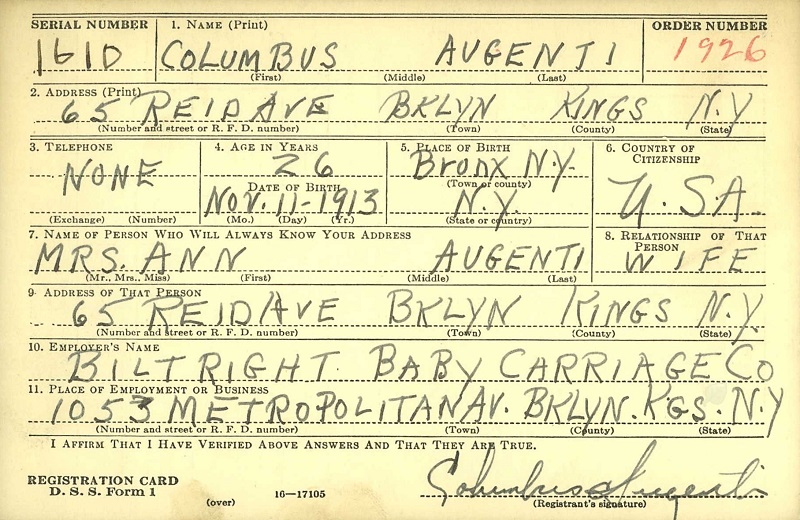 SERIAL NUMBER 1. NAME (Print) ORDER NUMBER
1610 COLUMBUS AUGENTI 1926
(First) (Middle) (Last)
2. ADDRESS (Print)
65 REID AVE BKLYN KINGS N.Y
(Number and street or R. F. D. number) (Town) (County) (State)
3. TELEPHONE 4. AGE IN YEARS 5. PLACE OF BIRTH 6. COUNTRY OF CITIZENSHIP
NONE 26 Bronx N.Y. U.S.A.
DATE OF BIRTH (Town or county)
NOV. 11-1913 N.Y.
(Exchange) (Number) (Mo.) (Day) (Yr.) (State or country)
7. NAME OF PERSON WHO WILL ALWAYS KNOW YOUR ADDRESS 8. RELATIONSHIP OF THAT PERSON
MRS. ANN AUGENTI WIFE
(Mr., Mrs., Miss) (First) (Middle) (Last)
9. ADDRESS OF THAT PERSON
65 REID AVE BKLYN KINGS N.Y.
(Number and street or R. F. D. number) (Town) (County) (State)
10. EMPLOYER'S NAME
BILTRIGHT BABY CARRIAGE CO
11. PLACE OF EMPLOYMENT OR BUSINESS
1053 METROPOLITAN AV. BKLYN. KGS. N.Y
(Number and street or R. F. D. number) (Town) (County) (State)
I AFFIRM THAT I HAVE VERIFIED ABOVE ANSWERS AND THAT THEY ARE TRUE.
REGISTRATION CARD Columbus Augenti
D. S. S. Form 1 (over) 16—17105 (Registrant's signature)